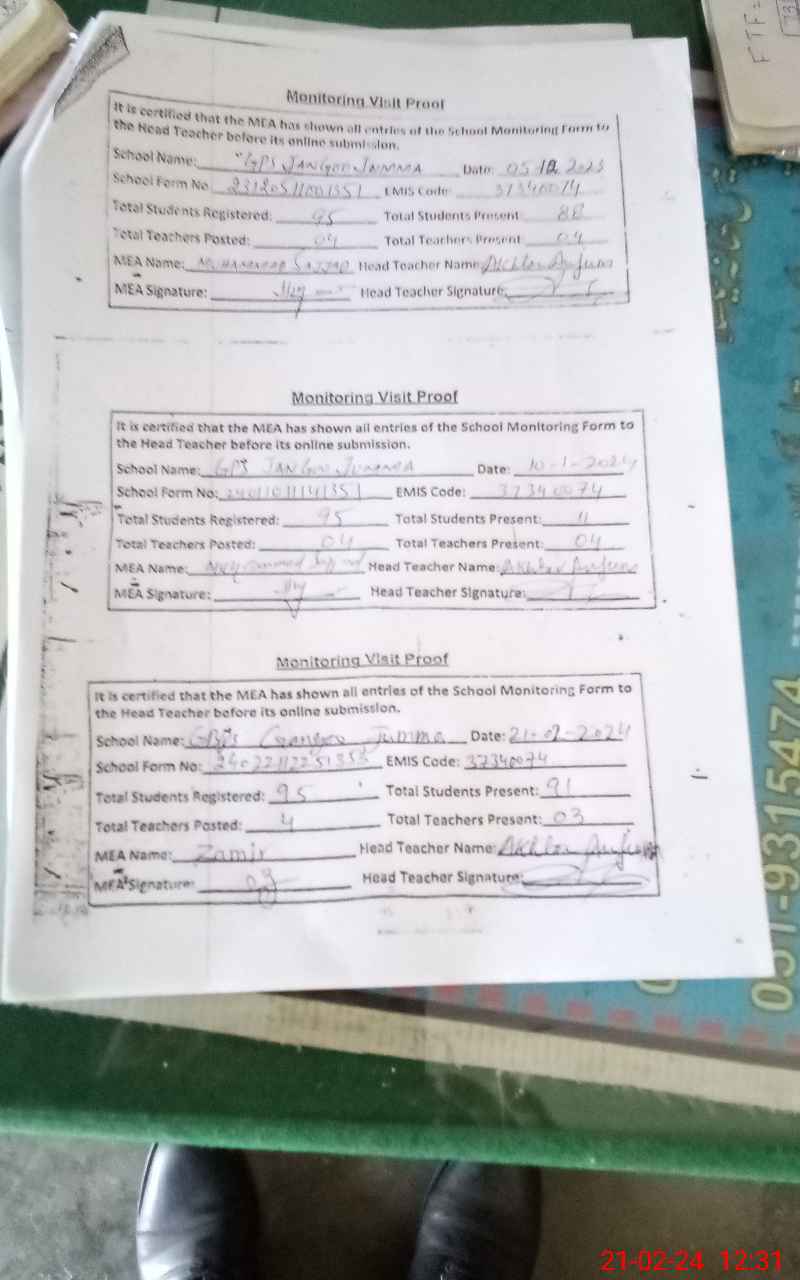 Monitoring Visit Proof
It is certified that the MEA has shown all entries of the School Monitoring Form to
the Head Teacher before its online submission.
School Name: GPS JANGOO JUMMA Date: 05-12 2023
School Form No 23120511001351 EMIS Code: 37340074
Total Students Registered: 95 Total Students Present 88
Total Teachers Posted: 04 Total Teachers Present 04
MEA Name: MUHAMMAD SAJJAD Head Teacher Name: Akhtar Anjum
MEA Signature: Head Teacher Signature:
Monitoring Visit Proof
It is certified that the MEA has shown all entries of the School Monitoring Form to
the Head Teacher before its online submission.
School Name: GPS JANGOO JUMMA Date: 10-1-2024
School Form No: EMIS Code: 37340074
Total Students Registered: 95 Total Students Present: 11
Total Teachers Posted: 04 Total Teachers Present: 04
MEA Name: Muhammad Sajjad Head Teacher Name: Akhtar Anjum
MEA Signature: Head Teacher Signature:
Monitoring Visit Proof
It is certified that the MEA has shown all entries of the School Monitoring Form to
the Head Teacher before its online submission.
School Name: GBPS Gangoo Jumma Date: 21-02-2024
School Form No: EMIS Code: 37340074
Total Students Registered: 95 Total Students Present: 91
Total Teachers Posted: 4 Total Teachers Present: 03
MEA Name: Zamir Head Teacher Name: Akhtar Anjum
MEA Signature: Head Teacher Signature:
FTF
051-9315474
21-02-24 12:31